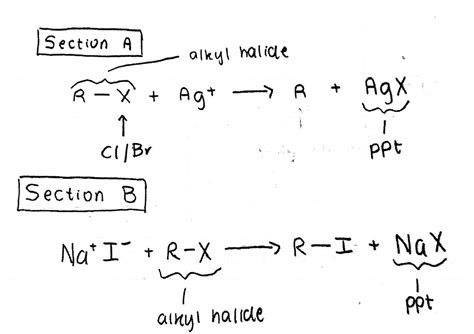 Section A
alkyl halide
R – X + Ag⁺ ⟶ R + AgX
Cl/Br
ppt
Section B
Na⁺ I⁻ + R–X ⟶ R–I + NaX
alkyl halide
ppt